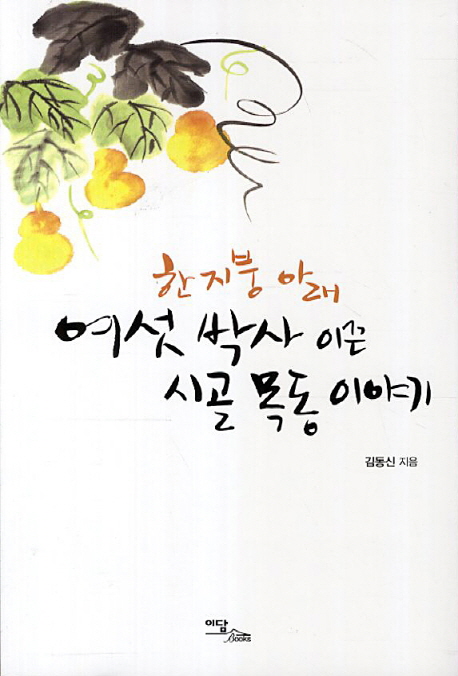 한 지붕 아래
여섯 박사 이끈
시골 목동 이야기
김동신 지음
이담
Books